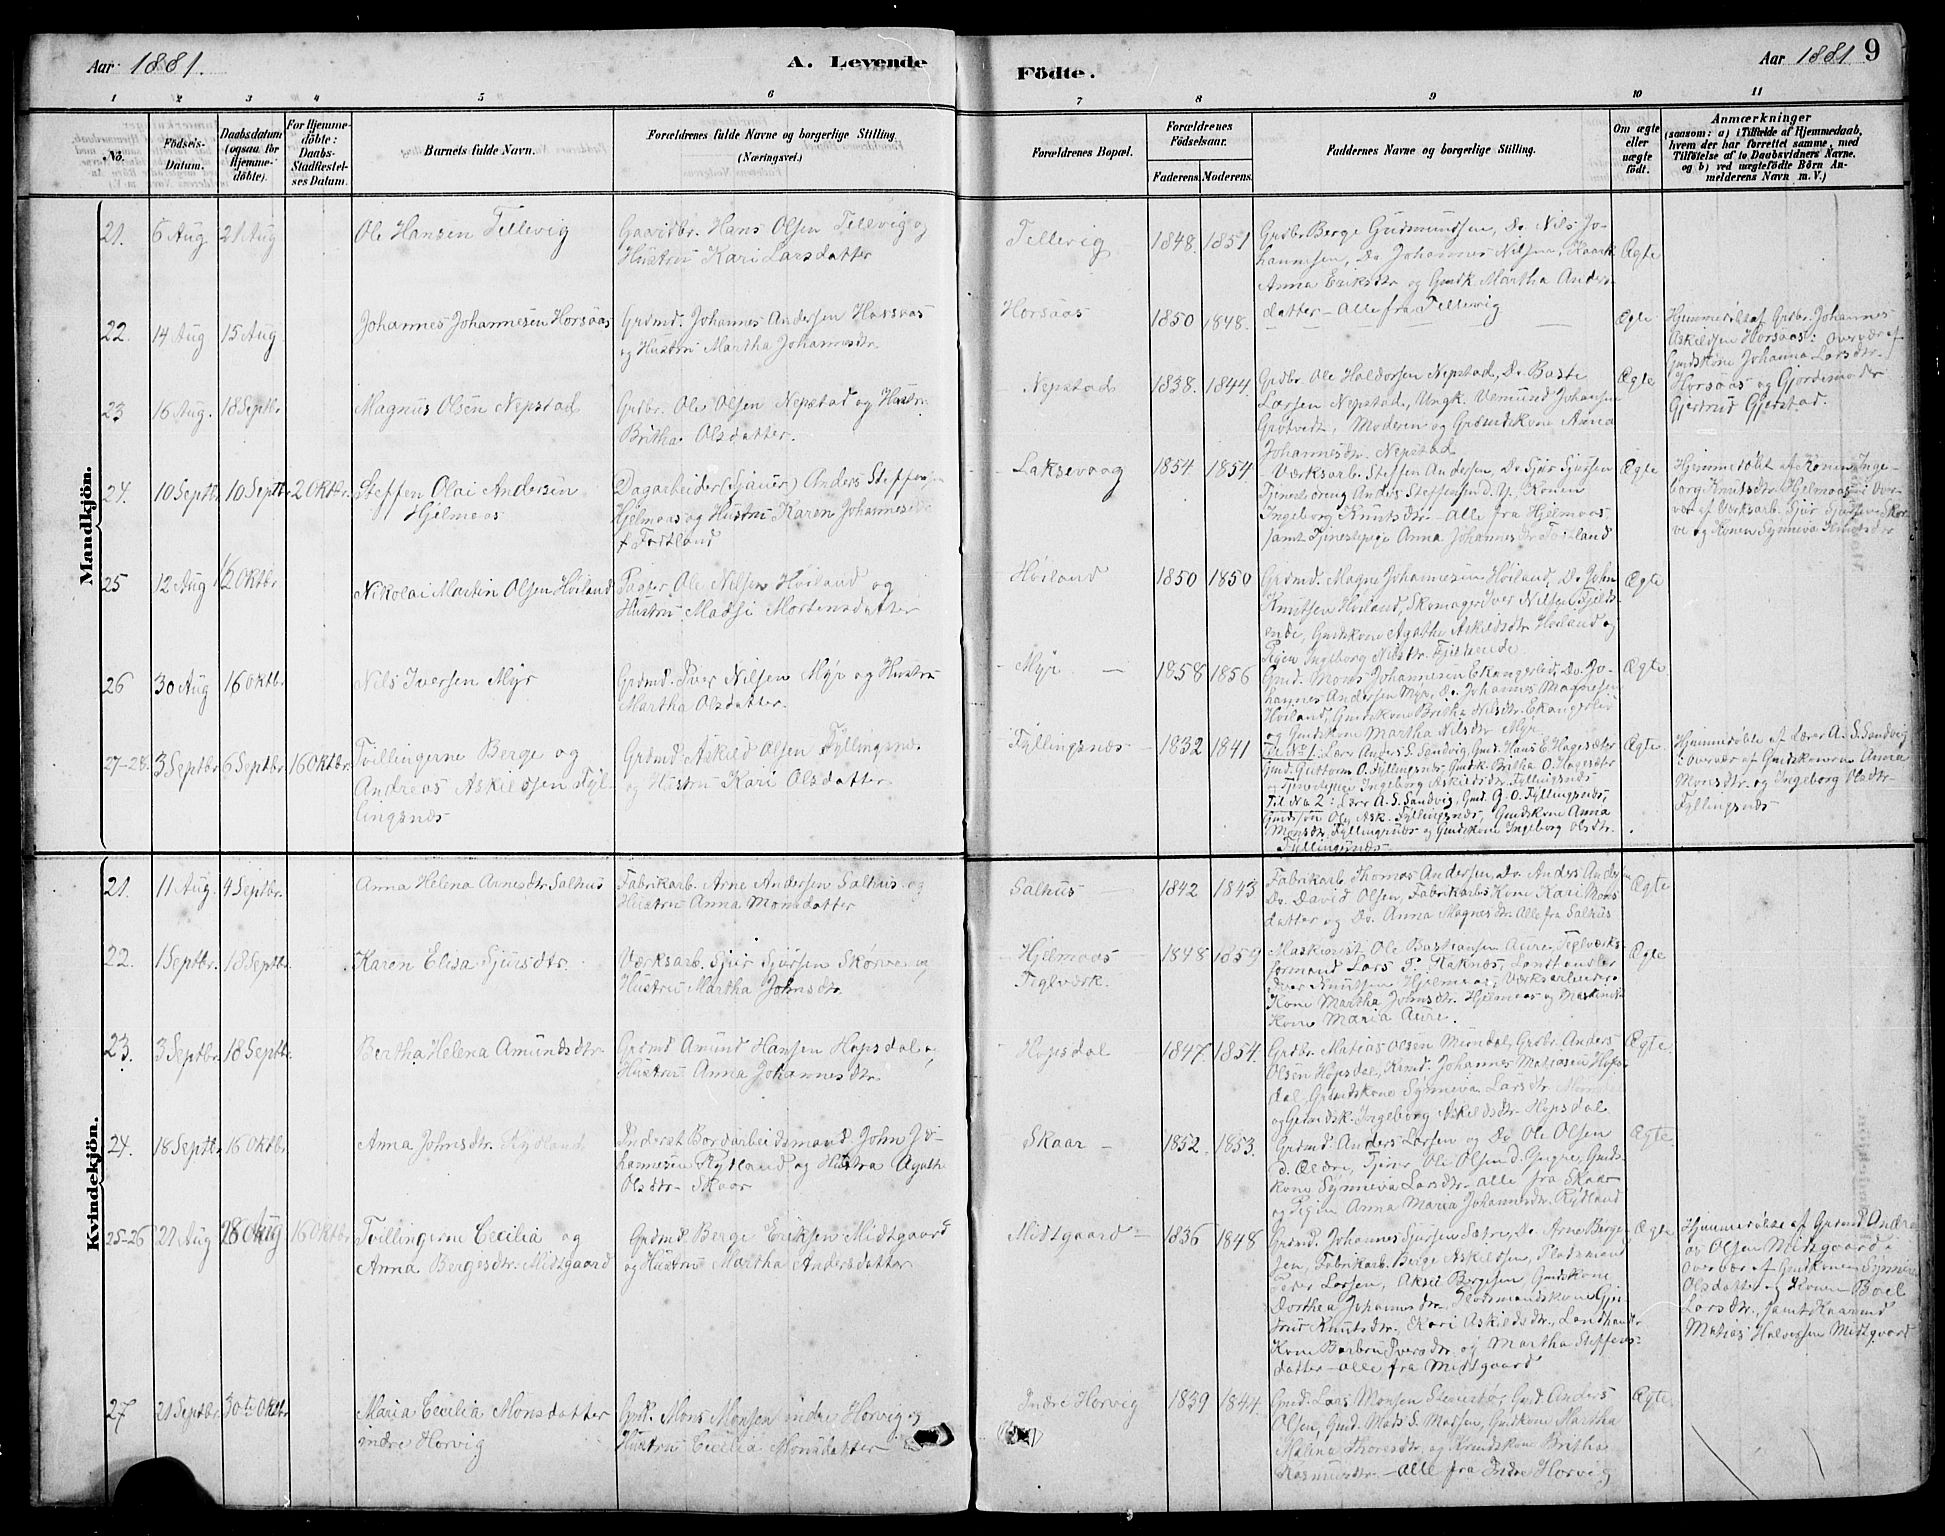 Aar 1881.
A. Levende
Födte.
Aar 1881
9
1 2 3 4 5 6 7 8 9 10 11
No.
Födsels-
Datum.
Daabsdatum
(ogsaa for
Hjemme-
döbte).
For Hjemme-
döbte:
Daabs-
Stadfæstel-
ses Datum.
Barnets fulde Navn.
Forældrenes fulde Navne og borgerlige Stilling
(Næringsvei.)
Forældrenes Bopæl.
Forældrenes
Födselsaar.
Faderens.
Moderens.
Faddernes Navne og borgerlige Stilling.
Om ægte
eller
uægte
födt.
Anmærkninger
(saasom: a) i Tilfælde af Hjemmedaab,
hvem der har forrettet samme, med
Tilföielse af to Daabsvidners Navne,
og b) ved uægtefödte Börn An-
melderens Navn m. V.)
Mandkjön.
21.
6 Aug.
21 Aug
Ole Hansen Tellevig
Hans Olsen Tellevig og
Hustru Kari Larsdatter
Tellevig
1848.
1851
Grdbr. Berge Gudmundsen, Do. Nils Jo-
hannesen, Do Johannes Nilsen,
Anna Eriksdtr og Gmdk. Martha Anders-
datter – Alle fra Tellevig
Ægte
22.
14 Aug
15 Aug
Johannes Johannesen Horsaas
Grdmd. Johannes Andersen Horsaas
og Hustru Martha Johannesdtr.
Horsaas
1850
1848.
Ægte
Hjemmedöbt af Grdbr. Johannes
Askildsen Horsaas: Overvær af
Gmdskone Johanna Larsdtr.
Horsaas og Gjordemoder
Gjertrud Gjerstad.
23
16 Aug.
18 Septbr.
Magnus Olsen Nepstad
Grdbr. Ole Olsen Nepstad og Hustru
Britha Olsdatter.
Nepstad
1838.
1844.
Grdbr. Ole Haldorsen Nepstad, Do. Baste
Larsen Nepstad, Ungk. Vemund Johansen
Moderen og Grdmdskone Anna
Johannesdtr. Nepstad
Ægte
24.
10 Septbr.
10 Septbr.
2 Oktbr.
Steffen Olai Andersen
Hjelmaas
Dagarbeider (Sjauer) Anders Steffensen
Hjelmaas og Hustru Karen Johannesdtr
f. Fortland
Laksevaag
1854.
1854.
Værksarb. Steffen Andersen, Do Sjur Sjursen
Tjenestedreng Anders Steffensen d. Y., Konen
Ingeborg Knutsdtr. – Alle fra Hjelmaas
samt Tjenestepige Anna Johannesdtr
Ægte
Hjemmedöbt af Konen Inge-
borg Knutsdtr. Hjelmaas i Over-
vær af Værksarb. Sjur Sjursen Skör-
ve og Konen Synneva Knutsdtr
25
12 Aug
2 Oktbr.
Nikolai Martin Olsen Höiland
Ole Nilsen Höiland og
Hustru Madsi Mortensdatter
Höiland
1850
1850
Grdmd. Magne Johannesen Höiland, Do. John
Knutsen Höiland, Skomager Iver Nilsen Fjelds-
ende, Gmdskone Agatha Askildsdtr. Höiland og
Pigen Ingeborg Nilsdtr. Fjeldsende
Ægte
26
30 Aug
16 Oktbr.
Nils Iversen Myr
Grdmd. Iver Nilsen Myr og Hustru
Martha Olsdatter.
Myr
1858
1856
Gmd. Mons Johannesen Ekangerlid, Do. Jo-
hannes Andersen Myr, Do. Johannes Magnesen
Höiland, Gmdskone Britha Nilsdtr. Ekangerlid
og Gmdskone Martha Nilsdtr Myr.
Ægte
27-28.
3 Septbr.
6 Septbr.
16 Oktbr.
Tvillingerne Berge og
Andreas Askildsen Fyl-
lingsnæs
Grdmd. Askild Olsen Fyllingsnæs
og Hustru Kari Olsdatter
Fyllingsnæs
1832
1841
Til No 1: Lærer Anders S. Sandvig, Gmd. Hans E. Hagesæter
Gmd. Guttorm O. Fyllingsnæs, Gmdk. Britha O. Hagesæter
og Tjenestepige Ingeborg Askildsdtr. Fyllingsnæs
Til No 2: Lærer A. S. Sandvig, Gmd. G. O. Fyllingsnæs,
Gmdssön Ole Ask. Fyllingsnæs, Gmdskone Anna
Monsdtr. Fyllingsnæs og Gmdskone Ingeborg Olsdtr.
Fyllingsnæs
Ægte
Hjemmedöbte af Lærer A. S. Sandvig
i Overvær af Gmdskonerne Anna
Monsdtr. og Ingeborg Olsdtr.
Fyllingsnæs
Kvindekjön.
21.
11 Aug.
4 Septbr.
Anna Helena Arnesdtr Salhus
Fabrikarb. Arne Andersen Salhus og
Hustru Anna Monsdatter
Salhus
1842
1843
Fabrikarb. Thomas Andersen, Do. Anders Andersen
Do. David Olsen, Fabrikarbs. Kone Kari Mons-
datter og Do. Anna Magnesdtr. Alle fra Salhus
Ægte
22.
1 Septbr.
18 Septbr.
Karen Elisa Sjursdtr.
Værksarb. Sjur Sjursen Skörve og
Hustru Martha Johnsdtr.
Hjelmaas
Teglværk.
1848
1859
Maskinist Ole Bastiansen Aure, Teglværks-
formand Lars Haknæs, Landhandler
Iver Knutsen Hjelmaas, Værksarbeider
Kone Martha Johnsdtr. Hjelmaas og Maskinist-
Kone Maria Aure.
Ægte
23.
3 Septbr.
18 Septbr.
Bertha Helena Amundsdtr.
Grdmd Amund Hansen Hopsdal og
Hustru Anna Johannesdtr.
Hopsdal
1847.
1854.
Grdbr. Matias Olsen Mundal, Grdbr. Anders
Olsen Hopsdal, Johannes Matiasen Hops-
dal, Grdmdskone Synneva Larsdtr
og Gmdsk. Ingeborg Askildsdtr. Hopsdal
Ægte.
24.
18 Septbr.
16 Oktbr.
Anna Johnsdtr. Rydland
Inderst Bordarbeidsmand John Jo-
hannesen Rydland og Hustru Agathe
Olsdtr. Skaar
Skaar
1852.
1853.
Grdmd. Anders Larsen og Do Ole Olsen
d. Ældre, Tjener Ole Olsen d. Yngre, Gmds-
kone Synneva Larsdtr. Alle fra Skaar
og Pigen Anna Maria Johannesdtr. Rydland
Ægte
25-26
27 Aug
28 Aug
16 Oktbr
Tvillingerne Cecilia og
Anna Bergesdtr. Midtgaard
Grdmd Berge Eriksen Midtgaard
og Hustru Martha Andersdatter
Midtgaard
1836
1848
Grdmd. Johannes Sjursen Sætre, Do. Arne Berge-
sen, Fabrikarb. Berge Askildsen, Pladsmand
Peder Larsen, Aksel Bergesen Gmdskone
Dorthea Johannesdtr, Pladsmandskone Gjer-
trud Knutsdtr. Kari Askildsdtr., Landhandl.
Kone Barbru Iversdtr. og Martha Steffens-
datter – alle fra Midtgaard
Ægte
Hjemmedöbte af Grdmd Andre-
as Olsen Midtgaard i
Overvær af Gmdkonen Synneva
Olsdatter og Konen Boel
Larsdtr. samt Kaarmd
Matias Halvorsen Midtgaard
27
21 Septbr.
30te Oktbr
Maria Cecilia Monsdatter
indre Horvig
Gmd. Mons Monsen indre Horvig og
Hustru Cecilia Monsdatter
Indre Horvig
1839
1844.
Gmd. Lars Monsen Gmd. Anders
Olsen, Gmd. Mads S. Madsen, Gmdkone Martha
Malena Thoresdtr. og Kone Britha
Rasmusdtr. – Alle fra Indre Horvig
Ægte